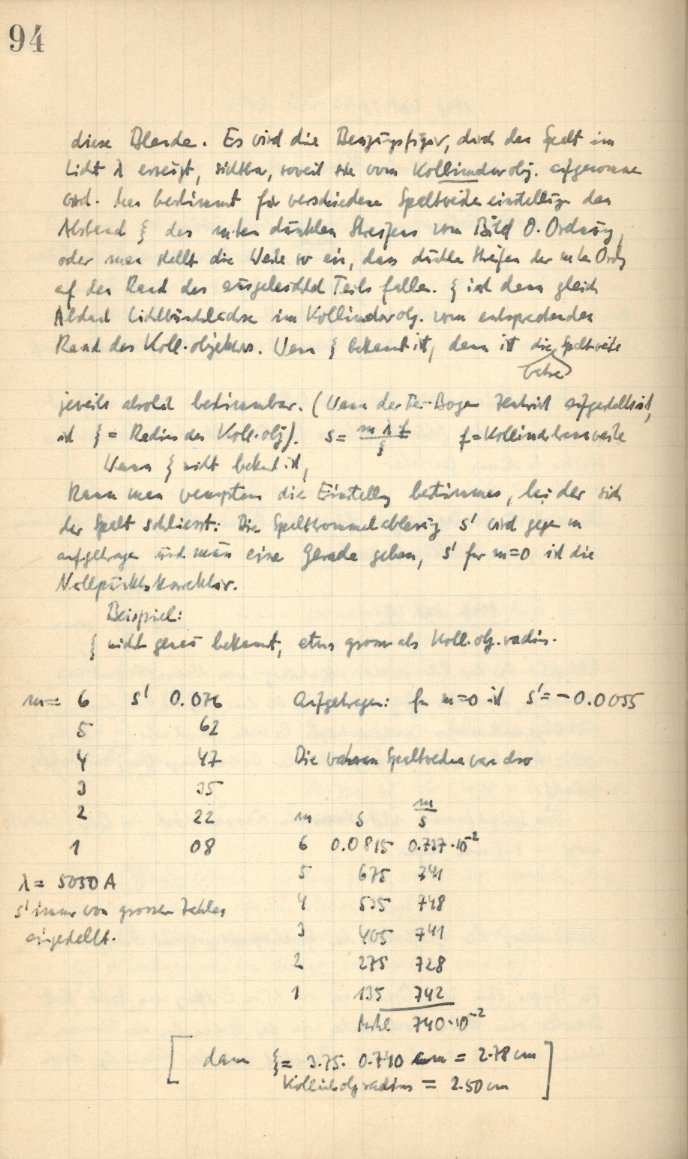 94
diese Blende. Es wird die Beugungsfigur, durch den Spalt im
Licht λ erzeugt, sichtbar, soweit sie vom Kollimatorobj. aufgenommen
wird. Man bestimmt für verschiedene Spaltweiteneinstellungen den
Abstand ξ des m-ten dunklen Streifens vom Bild 0. Ordnung,
oder man stellt die Weite so ein, dass dunkle Streifen der m-ten Ordg
auf den Rand des ausgeleuchteten Teils fallen. ξ ist dann gleich
Abstand Lichtbündelachse im Kollimatorobj. vom entsprechenden
Rand des Koll.objektivs. Wenn ξ bekannt ist, dann ist die Spaltweite
jeweils absolut bestimmbar. (Wenn der Bogen zentrisch aufgestellt ist,
ist ξ = Radius des Koll.obj). s = m λ f / ξ f = Kollimatorbrennweite
Wenn ξ nicht bekannt ist,
kann man wenigstens die Einstellg bestimmen, bei der sich
der Spalt schliesst: Die Spalttrommelablesung s' wird gegen m
aufgetragen und muss eine Gerade geben, s' für m=0 ist die
Nullpunktskorrektur.
Beispiel:
ξ nicht genau bekannt, etwas grösser als Koll.obj.radius.
m= 6 s' 0.076 Aufgetragen: für m=0 ist s' = -0.0055
5 62
4 47 Die wahren Spaltweiten waren also
3 35
2 22 m s m/s
1 08 6 0.0815 0.737·10⁻²
λ = 5030 A 5 675 741
s' immer von grossen Zahlen 4 535 748
eingestellt. 3 405 741
2 275 728
1 135 742
Mittel 740·10⁻²
[ dann ξ = 3.75. 0.740 cm = 2.78 cm
Kollimobjradius = 2.50 cm ]